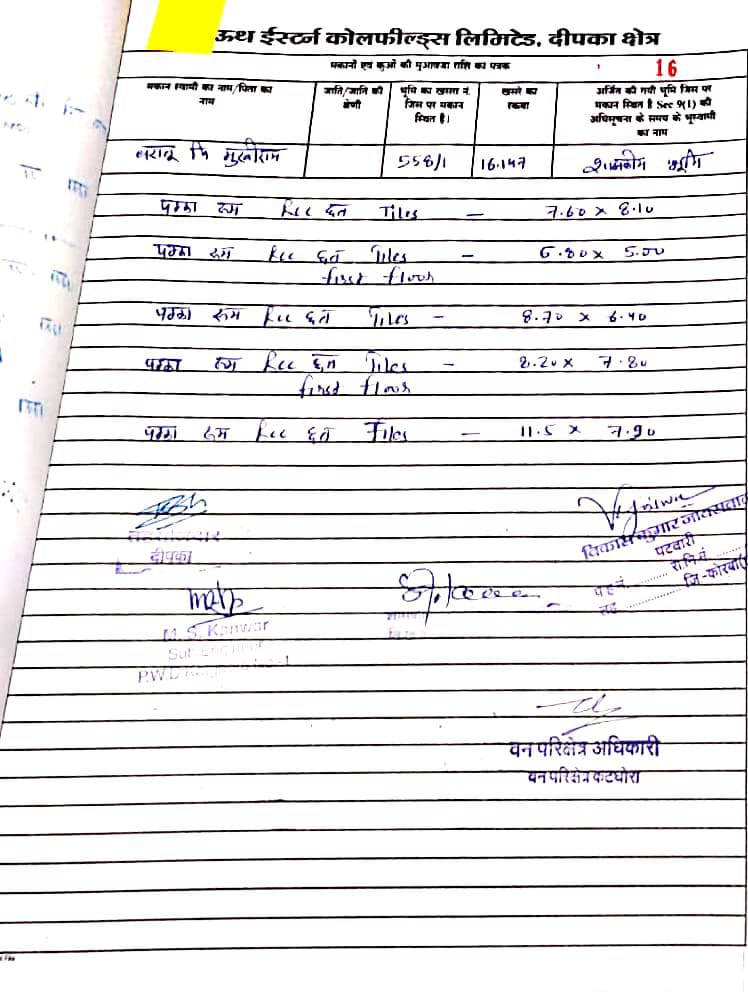 ऊथ ईस्टर्न कोलफील्ड्स लिमिटेड, दीपका क्षेत्र
मकानों एवं कुओं की मुआवजा राशि का पत्रक
16
मकान स्वामी का नाम/पिता का नाम
जाति/जाति की श्रेणी
भूमि का खसरा नं. जिस पर मकान स्थित है।
खसरे का रकबा
अर्जित की गयी भूमि जिस पर मकान स्थित है Sec 9(1) की अधिसूचना के समय के भूस्वामी का नाम
558/1 16.147 शासकीय भूमि
पक्का रूम Rcc छत Tiles — 7.60 x 8.10
पक्का रूम Rcc छत Tiles — 6.80 x 5.00
first floor
पक्का रूम Rcc छत Tiles — 8.70 x 6.40
पक्का रूम Rcc छत Tiles — 8.20 x 7.80
first floor
पक्का रूम Rcc छत Tiles — 11.5 x 7.90
तहसीलदार
दीपका
विकास कुमार जायसवाल
पटवारी
प.ह.नं. .......... रा.नि.मं. ..........
तह. .......... जि.-कोरबा
M. S. Kanwar
Sub Engineer
P.W.D
वन परिक्षेत्र अधिकारी
वन परिक्षेत्र कटघोरा